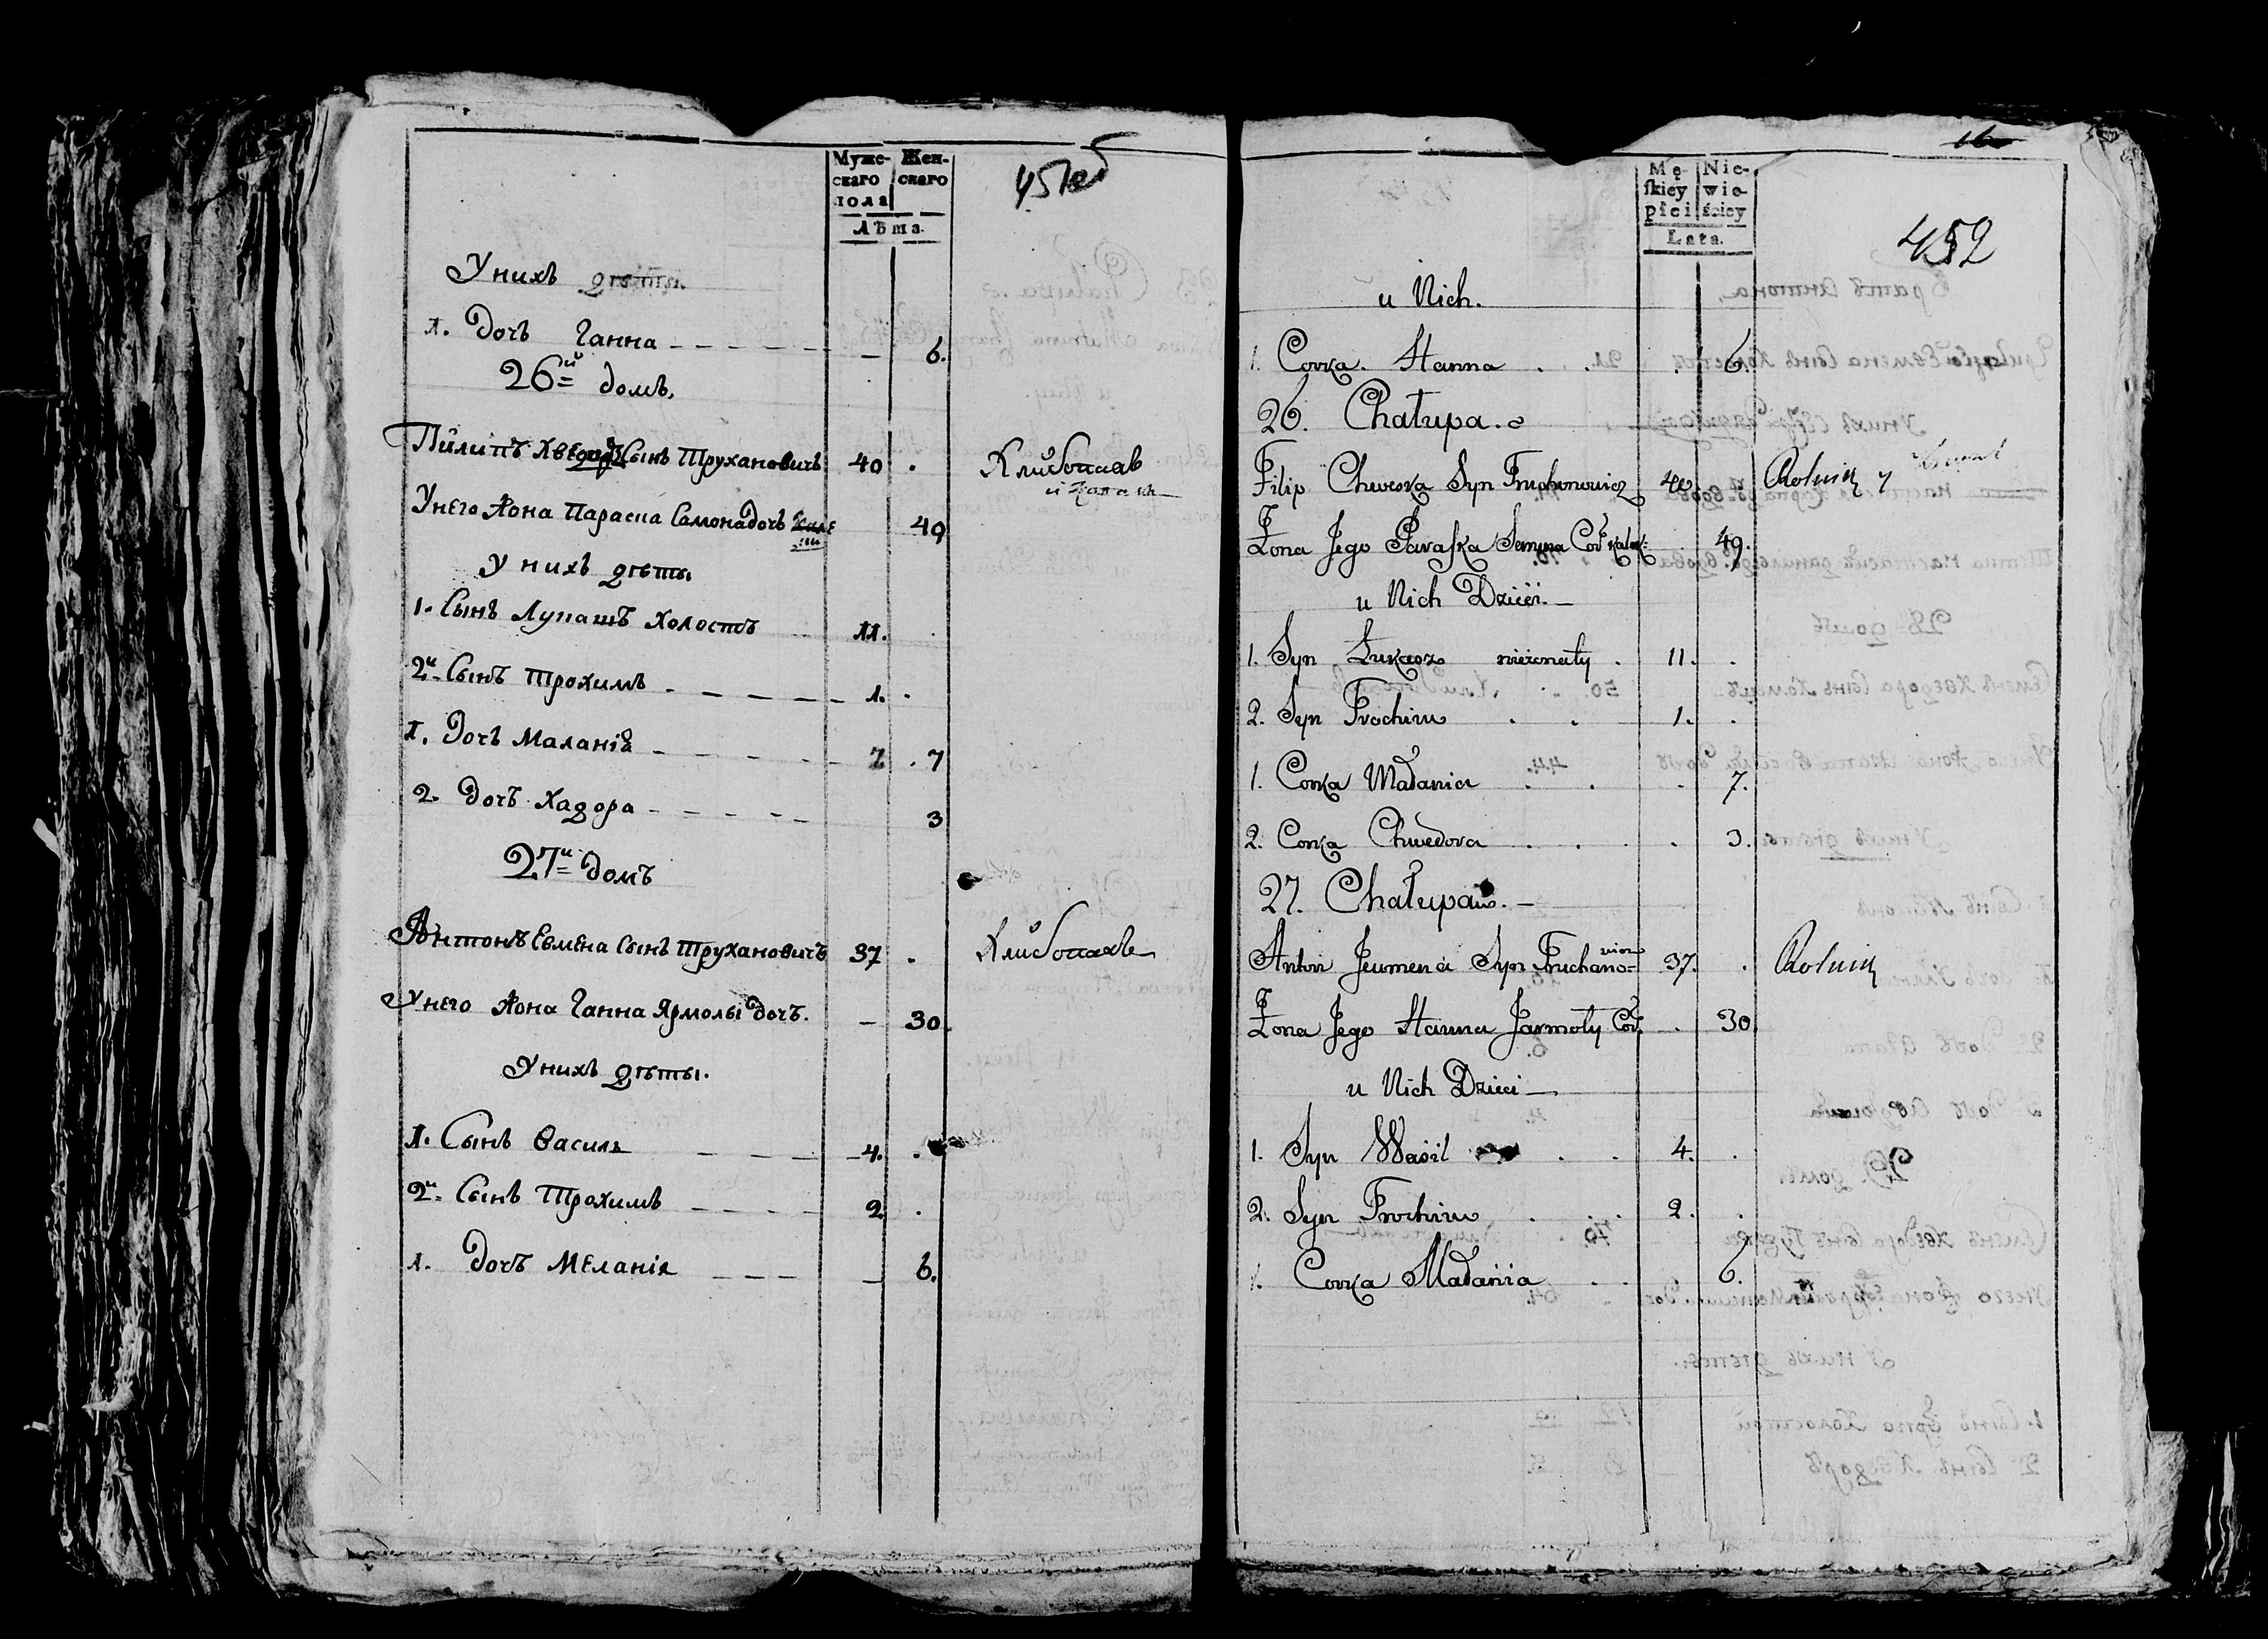 Муже-
скаго
пола
Жен-
скаго
Лѣта.
451 об
Унихъ дѣти.
1. Дочь Ганна - - - - - 6.
26й домъ.
Пилипъ Хведора Сынъ Трухановичъ 40 . Хлибопашъ
Унего Жона Параска Самона дочъ 49
У нихъ дѣты
1. Сынъ Лукашъ холостъ 11. .
2й Сынъ Трохимъ - - - - - 1. .
1. Дочь Маланія - - - - 7 . 7
2. Дочъ Хадора - - - - - 3
27й домъ
Антонъ Евмена Сынъ Трухановичъ 37 . Хлибопашъ
Унего Жона Ганна Ярмолы дочъ. - 30
Унихъ дѣты.
1. Сынъ Василь - - - 4. .
2й Сынъ Трохимъ - - - - 2 .
1. дочъ Меланія - - - - 6.
Mę-
skiey
płci
Nie-
wie-
ściey
Lata.
452
u Nich.
1. Corka. Hanna . . . 6.
26. Chałupa.
Filip Chwedora Syn Truchonowicz 40. Rolnik y
Żona Jego Paraska Semena Cor 49.
u Nich Dzieci. -
1. Syn Łukasz nieżonaty . 11. .
2. Syn Trochim . . 1. .
1. Corka Małania . . . 7.
2. Corka Chwedora . . . . 3.
27. Chałupa. -
Anton Jeumena Syn Truchano=
wicz 37. . Rolnik
Żona Jego Hanna Jarmoły Cor. . 30
u Nich Dzieci -
1. Syn Wasil . . 4. .
2. Syn Trochim . . . 2. .
1. Corka Małania . . 6.